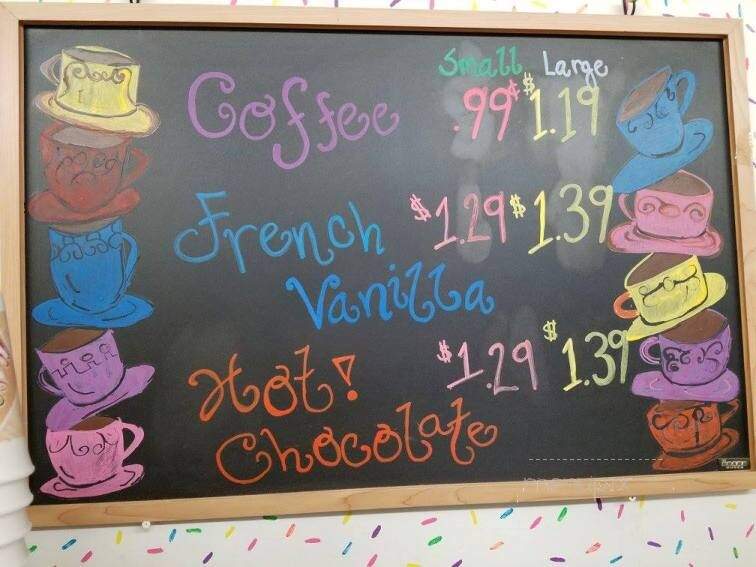 Small Large
Coffee .99¢ $1.19
French $1.29 $1.39
Vanilla
Hot! $1.29 $1.39
Chocolate